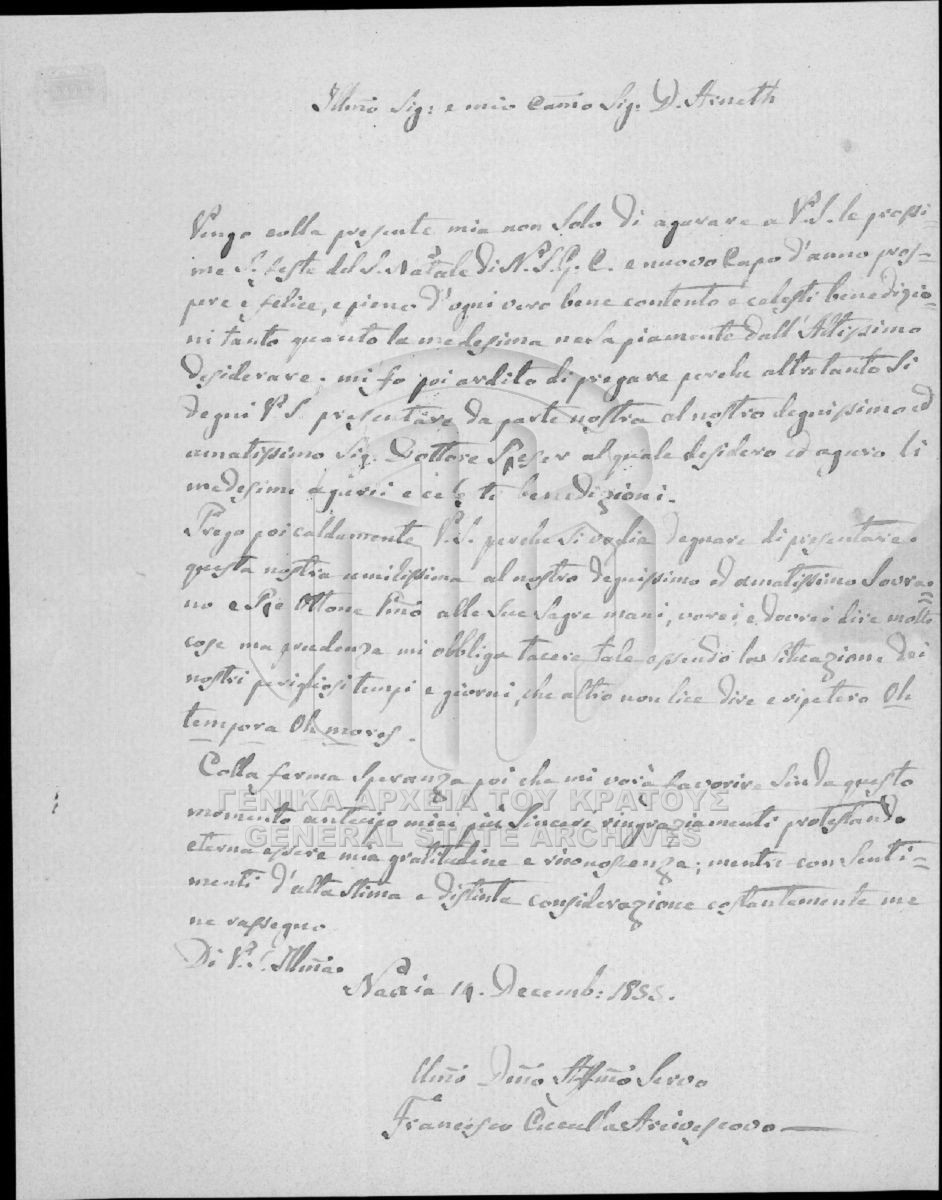 Illmo Sig: e mio Carmo Sig: D. Arneth
Vengo colla presente mia non solo di agurare a V.S. le prossi=
me S. feste del S. Natale di N.S.G.C. e nuovo Capo d'anno pros=
pere e felice, e pieno d'ogni vero bene contento e celesti benedizio=
ni tanto quanto la medesima nel sa piamente dall'Altissimo
desiderare. mi fo poi ardito di pregare perche altretanto Si
degni V.S. presentare da parte nostra al nostro degnissimo ed
amatissimo Sig. Dottore al quale desidero ed aguro li
medesimi agurii e celesti benedizioni.
Prego poi caldamente V.S. perche Si voglia degnare di presentare
questa nostra umilissima al nostro degnissimo ed amatissimo Sovra=
no e Re Ottone Pmo alle Sue Sagre mani, vorei, e dovrei dire molte
cose ma prudenza mi obbliga tacere tale essendo la situazione dei
nostri perigliosi tempi e giorni, che altro non lice dire e ripetere Oh
tempora Oh mores.
Colla ferma Speranza poi che mi vorà favorire Sin da questo
momento antecipo miei più Sinceri ringraziamenti protestando
eterna essere mia gratitudine e riconoscenza; mentre con Senti=
menti d'alta stima e distinta considerazione costantemente me
ne rassegno
Di V.S. Illma
Naxia 14. Decemb: 1835.
Umo Dmo Servo
Francesco Cuculla Arcivescovo
ΓΕΝΙΚΑ ΑΡΧΕΙΑ ΤΟΥ ΚΡΑΤΟΥΣ
GENERAL STATE ARCHIVES